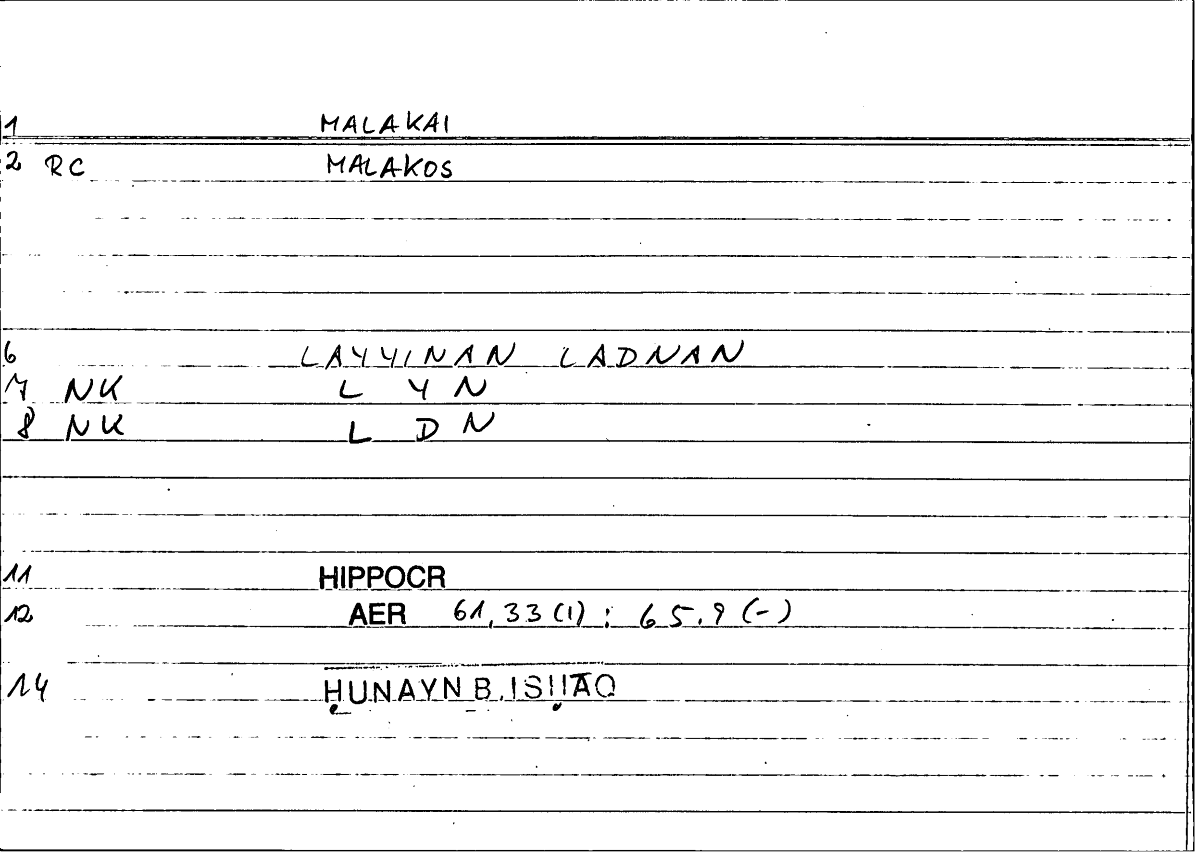 1 MALAKAI
2 RC MALAKOS
6 LAYYINAN LADNAN
7 NK L Y N
8 NK L D N
11 HIPPOCR
12 AER 61,33 (1) : 65.9 (-)
14 ḤUNAYN B. ISḤĀQ